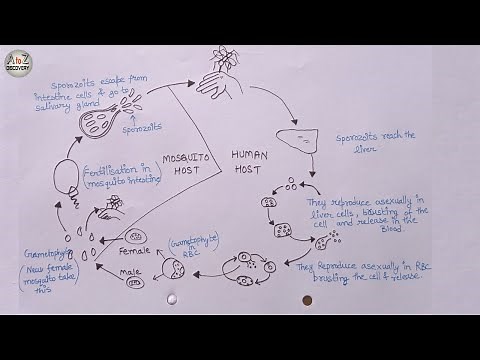 A to Z
DISCOVERY
Sporozoits escape from
intestine cells & go to
salivary gland
sporozoits
Sporozoits reach the
liver.
Fertilisation in
mosquito intestine
MOSQUITO
HOST
HUMAN
HOST
They reproduce asexually in
liver cells, brusting of the
cell and release in the
Blood.
Female
Male
(Gametophyte)
in
RBC
Gametophyte
(New female
mosquito take
this
They Reproduce asexually in RBC
brusting the cell & release.